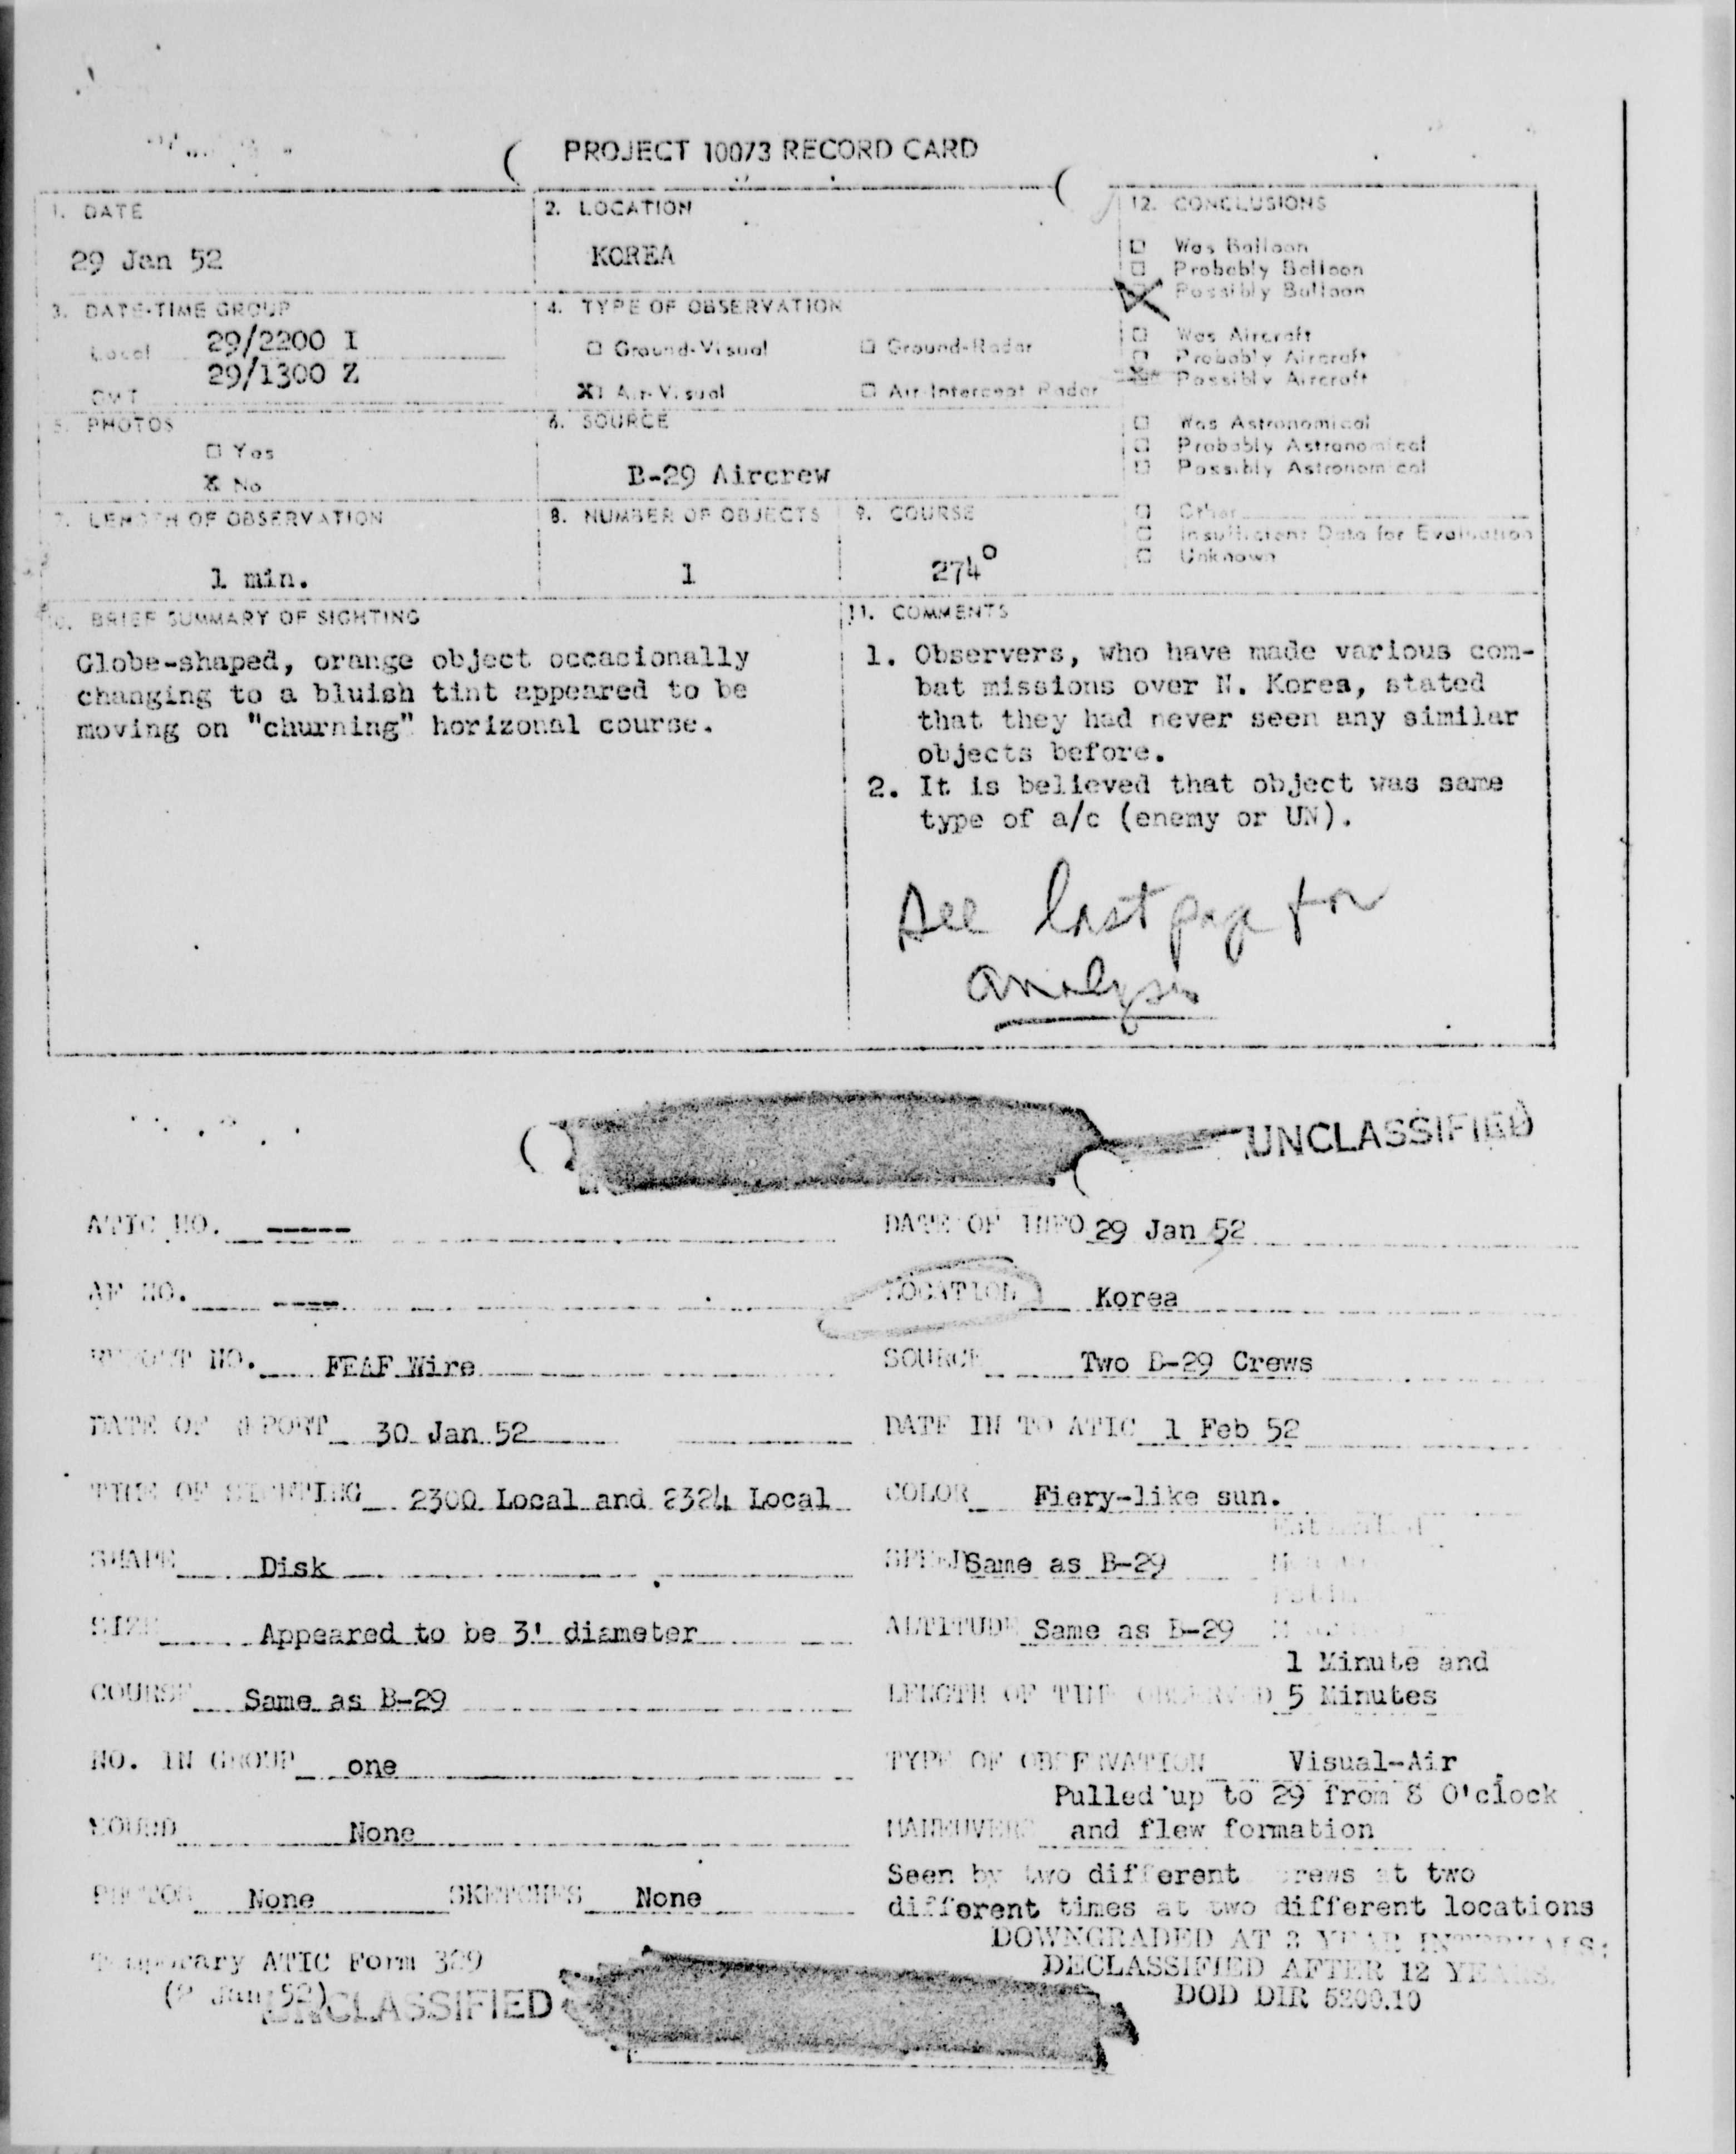 PROJECT 10073 RECORD CARD
1. DATE
29 Jan 52
2. LOCATION
KOREA
12. CONCLUSIONS
☐ Was Balloon
☐ Probably Balloon
X Possibly Balloon
☐ Was Aircraft
☐ Probably Aircraft
Possibly Aircraft
☐ Was Astronomical
☐ Probably Astronomical
☐ Possibly Astronomical
☐ Other
☐ Insufficient Data for Evaluation
☐ Unknown
3. DATE-TIME GROUP
Local 29/2200 I
GMT 29/1300 Z
4. TYPE OF OBSERVATION
☐ Ground-Visual ☐ Ground-Radar
X Air-Visual ☐ Air-Intercept Radar
5. PHOTOS
☐ Yes
X No
6. SOURCE
B-29 Aircrew
7. LENGTH OF OBSERVATION
1 min.
8. NUMBER OF OBJECTS
1
9. COURSE
274°
10. BRIEF SUMMARY OF SIGHTING
Globe-shaped, orange object occacionally
changing to a bluish tint appeared to be
moving on "churning" horizonal course.
11. COMMENTS
1. Observers, who have made various com-
bat missions over N. Korea, stated
that they had never seen any similar
objects before.
2. It is believed that object was same
type of a/c (enemy or UN).
See last page for
analysis
UNCLASSIFIED
ATIC NO. -----
DATE OF INFO 29 Jan 52
AF NO. ----
LOCATION Korea
REPORT NO. FEAF Wire
SOURCE Two B-29 Crews
DATE OF REPORT 30 Jan 52
DATE IN TO ATIC 1 Feb 52
TIME OF SIGHTING 2300 Local and 2324 Local
COLOR Fiery-like sun.
SHAPE Disk
SPEED Same as B-29
SIZE Appeared to be 3' diameter
ALTITUDE Same as B-29
COURSE Same as B-29
1 Minute and
LENGTH OF TIME OBSERVED 5 Minutes
NO. IN GROUP one
TYPE OF OBSERVATION Visual-Air
Pulled up to 29 from 8 O'clock
SOUND None
MANEUVERS and flew formation
PHOTOS None SKETCHES None
Seen by two different crews at two
different times at two different locations
DOWNGRADED AT 3 YEAR INTERVALS;
DECLASSIFIED AFTER 12 YEARS.
DOD DIR 5200.10
Temporary ATIC Form 329
(2 Jan 52)
UNCLASSIFIED